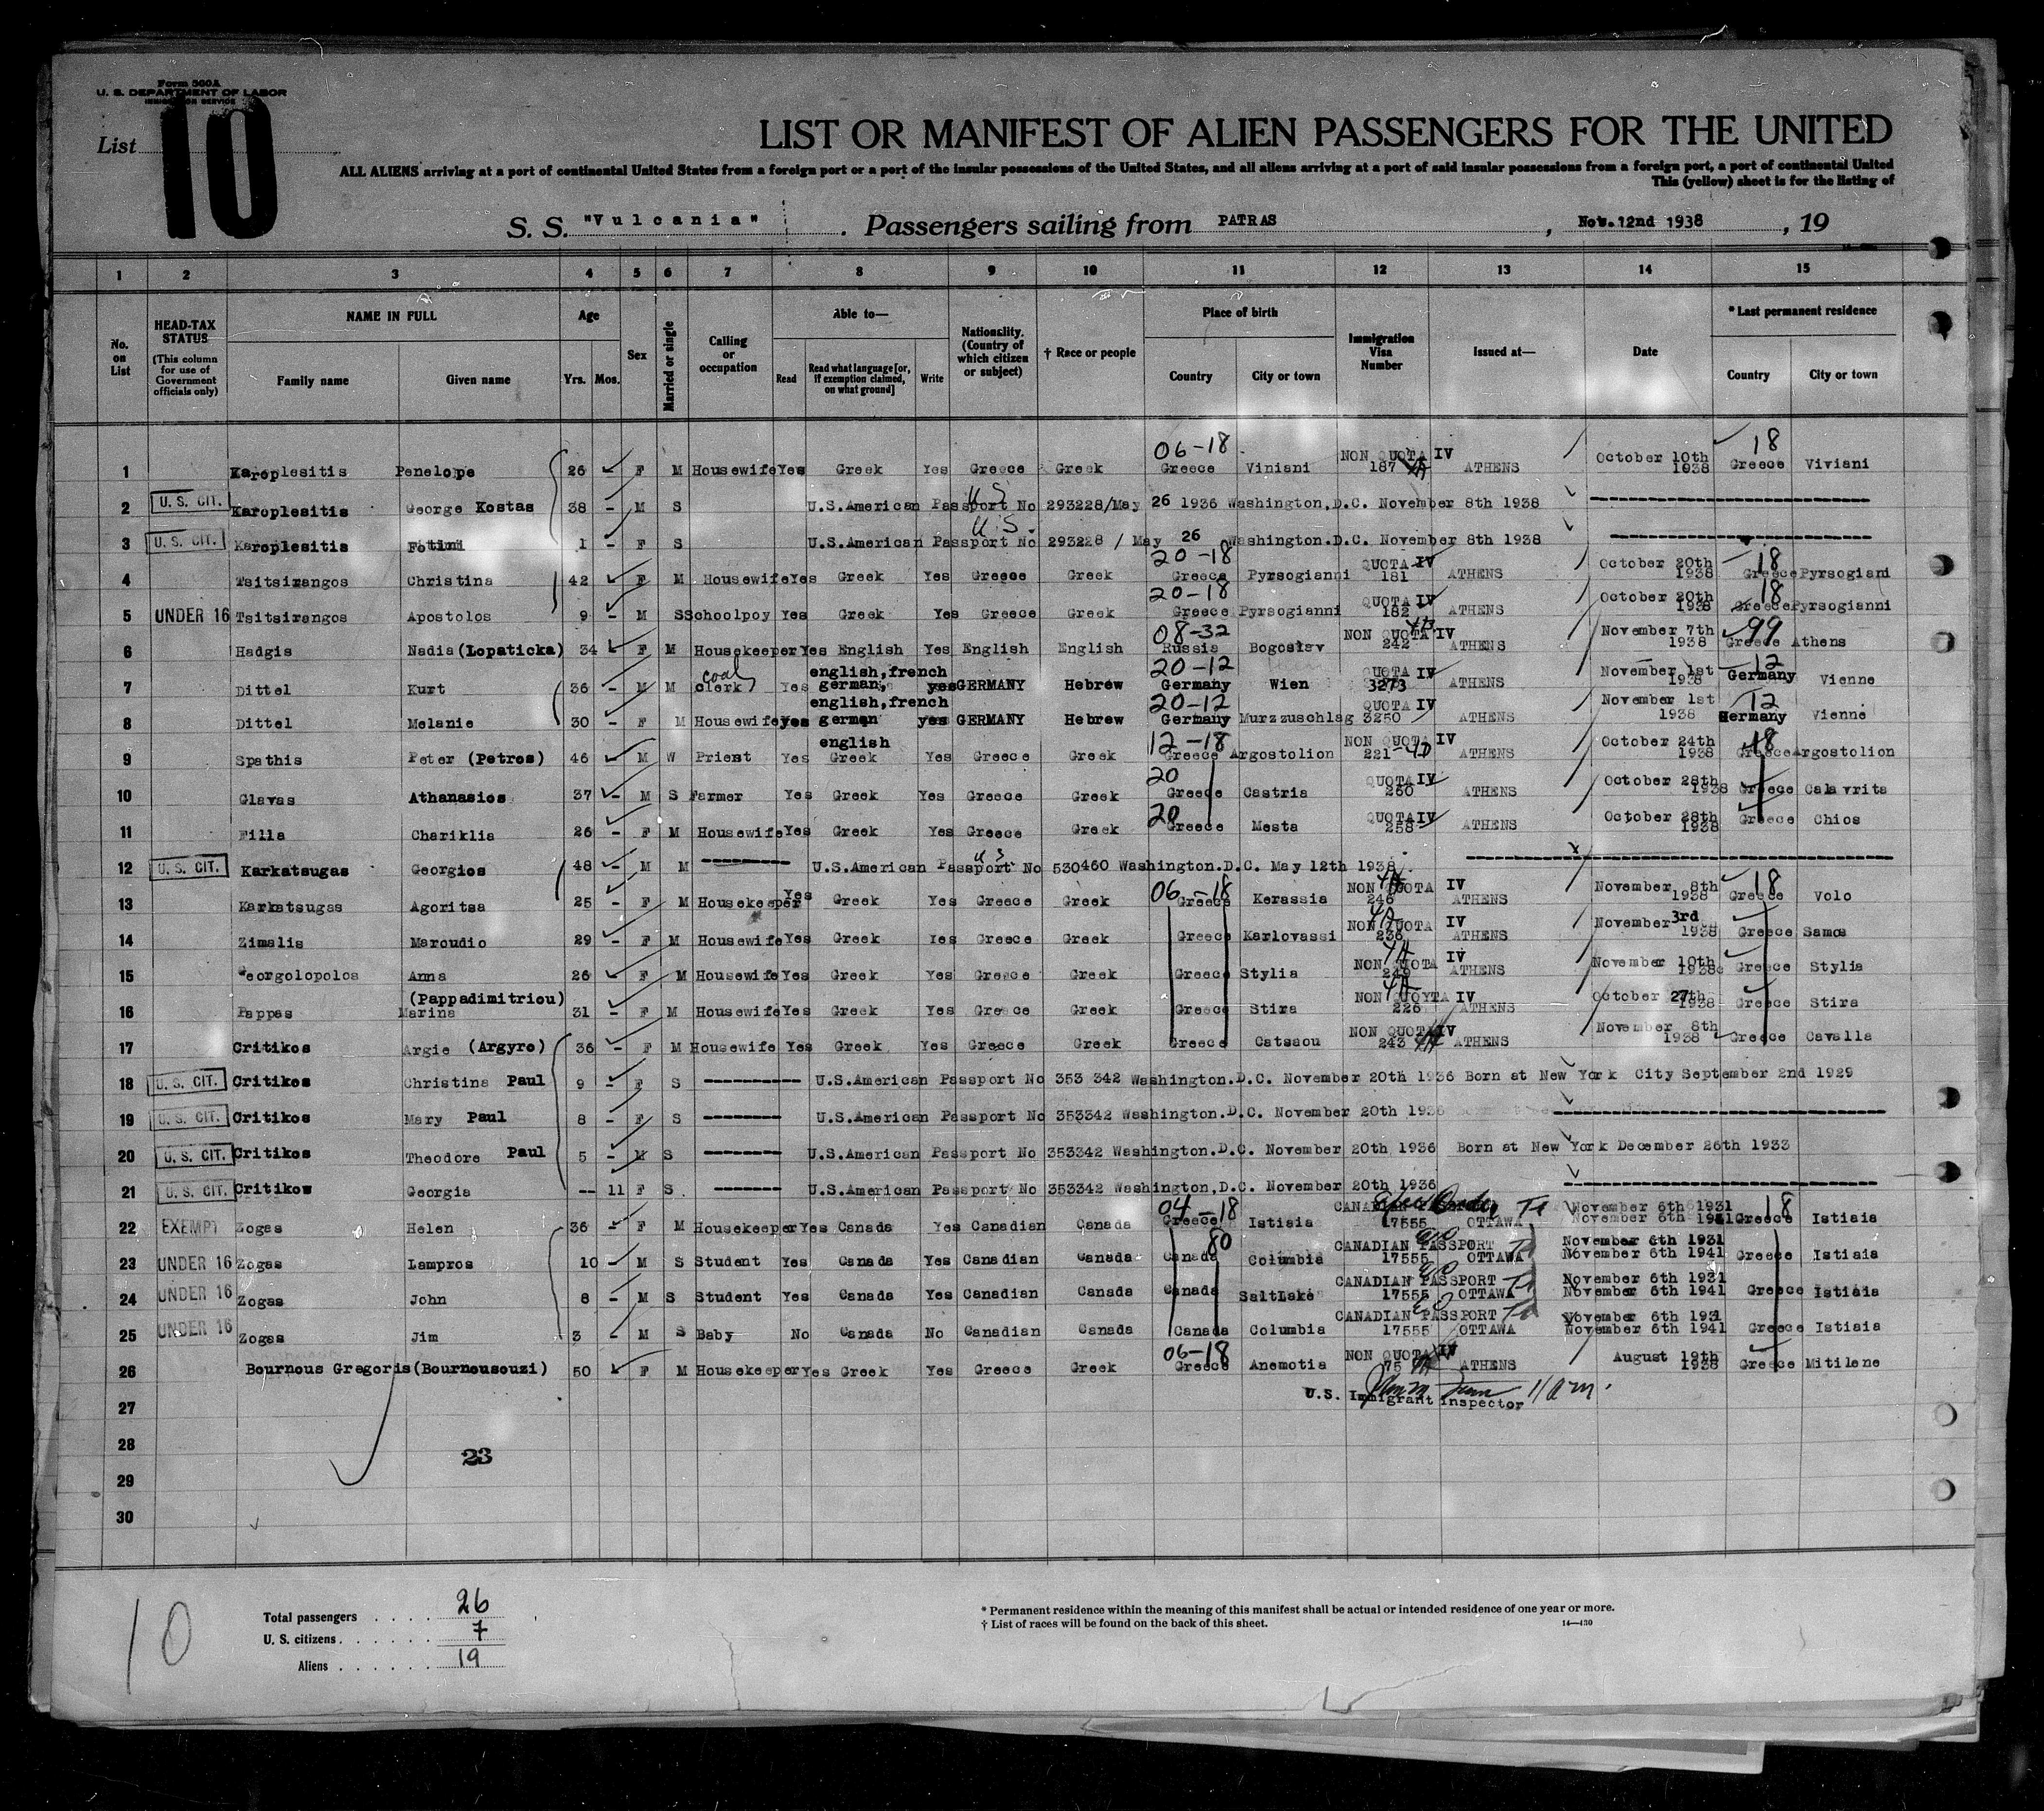 Form 500A
U. S. DEPARTMENT OF LABOR
IMMIGRATION SERVICE
List 10
LIST OR MANIFEST OF ALIEN PASSENGERS FOR THE UNITED
ALL ALIENS arriving at a port of continental United States from a foreign port or a port of the insular possessions of the United States, and all aliens arriving at a port of said insular possessions from a foreign port, a port of continental United
This (yellow) sheet is for the listing of
S. S. "Vulcania" . Passengers sailing from PATRAS , Nov. 12nd 1938 , 19
1 2 3 4 5 6 7 8 9 10 11 12 13 14 15
No. on List
HEAD-TAX STATUS (This column for use of Government officials only)
NAME IN FULL Family name Given name
Age Yrs. Mos.
Sex
Married or single
Calling or occupation
Able to— Read Read what language [or, if exemption claimed, on what ground] Write
Nationality. (Country of which citizen or subject)
† Race or people
Place of birth Country City or town
Immigration Visa Number
Issued at—
Date
* Last permanent residence Country City or town
06-18 NON QUOTA IV October 10th 18
1 Karoplesitis Penelope 26 F M Housewife Yes Greek Yes Greece Greek Greece Viniani 187 ATHENS 1938 Greece Viviani
2 U. S. CIT. Karoplesitis George Kostas 38 - M S U.S.American Passport No 293228/May 26 1936 Washington,D.C. November 8th 1938
U.S.
3 U. S. CIT. Karoplesitis Fotini 1 - F S U.S.American Passport No 293228 / May 26 Washington.D.C. November 8th 1938
20-18 QUOTA IV October 20th 18
4 Tsitsirangos Christina 42 F M Housewife Yes Greek Yes Greece Greek Greece Pyrsogianni 181 ATHENS 1938 Greece Pyrsogiani
20-18 QUOTA IV October 20th 18
5 UNDER 16 Tsitsirangos Apostolos 9 - M S Schoolpoy Yes Greek Yes Greece Greek Greece Pyrsogianni 182 ATHENS 1938 Greece Pyrsogianni
08-32 NON QUOTA IV November 7th 99
6 Hadgis Nadia (Lopaticka) 34 F M Housekeeper Yes English Yes English English Russia Bogoslav 242 ATHENS 1938 Greece Athens
coal english,french 20-12 QUOTA IV November 1st 12
7 Dittel Kurt 36 - M M clerk Yes german, yes GERMANY Hebrew Germany Wien 3273 ATHENS 1938 Germany Vienne
english,french 20-12 QUOTA IV November 1st 12
8 Dittel Melanie 30 - F M Housewife yes german yes GERMANY Hebrew Germany Murzzuschlag 3250 ATHENS 1938 Germany Vienne
english 12-18 NON QUOTA IV October 24th 18
9 Spathis Peter (Petros) 46 M W Priest Yes Greek Yes Greece Greek Greece Argostolion 221-4D ATHENS 1938 Greece Argostolion
20 QUOTA IV October 28th
10 Glavas Athanasios 37 - M S Farmer Yes Greek Yes Greece Greek Greece Castria 260 ATHENS 1938 Greece Calavrita
20 QUOTA IV October 28th
11 Filla Chariklia 26 - F M Housewife Yes Greek Yes Greece Greek Greece Mesta 258 ATHENS 1938 Greece Chios
12 U. S. CIT. Karkatsugas Georgios 48 - M M U.S.American Passport No 530460 Washington.D.C. May 12th 1938
06-18 NON QUOTA IV November 8th 18
13 Karkatsugas Agoritsa 25 - F M Housekeeper Yes Greek Yes Greece Greek Greece Kerassia 246 ATHENS 1938 Greece Volo
4A NON QUOTA IV November 3rd
14 Zimalis Maroudio 29 - F M Housewife Yes Greek Yes Greece Greek Greece Karlovassi 236 ATHENS 1938 Greece Samos
4A NON QUOTA IV November 10th
15 Georgolopolos Anna 26 F M Housewife Yes Greek Yes Greece Greek Greece Stylia 249 ATHENS 1938 Greece Stylia
(Pappadimitriou) 4A NON QUOYTA IV October 27th
16 Pappas Marina 31 - F M Housewife Yes Greek Yes Greece Greek Greece Stira 226 ATHENS 1938 Greece Stira
NON QUOTA IV November 8th
17 Critikos Argie (Argyro) 36 - F M Housewife Yes Greek Yes Greece Greek Greece Catsaou 243 4A ATHENS 1938 Greece Cavalla
18 U. S. CIT. Critikos Christina Paul 9 - F S U.S.American Passport No 353 342 Washington.D.C. November 20th 1936 Born at New York City September 2nd 1929
19 U. S. CIT. Critikos Mary Paul 8 - F S U.S.American Passport No 353342 Washington.D.C. November 20th 1936
20 U. S. CIT. Critikos Theodore Paul 5 - M S U.S.American Passport No 353342 Washington.D.C. November 20th 1936 Born at New York December 26th 1933
21 U. S. CIT. Critikow Georgia -- 11 F S U.S.American Passport No 353342 Washington,D.C. November 20th 1936
04-18 November 6th 1931 18
22 EXEMPT Zogas Helen 36 - F M Housekeeper Yes Canada Yes Canadian Canada Greece Istiaia 17555 OTTAWA November 6th 1941 Greece Istiaia
80 CANADIAN PASSPORT November 6th 1931
23 UNDER 16 Zogas Lampros 10 - M S Student Yes Canada Yes Canadian Canada Canada Columbia 17555 OTTAWA November 6th 1941 Greece Istiaia
CANADIAN PASSPORT November 6th 1931
24 UNDER 16 Zogas John 8 - M S Student Yes Canada Yes Canadian Canada Canada SaltLake 17555 OTTAWA November 6th 1941 Greece Istiaia
CANADIAN PASSPORT November 6th 1931
25 UNDER 16 Zogas Jim 3 - M S Baby No Canada No Canadian Canada Canada Columbia 17555 OTTAWA November 6th 1941 Greece Istiaia
06-18 NON QUOTA IV August 19th
26 Bournous Gregoris (Bournousouzi) 50 F M Housekeeper Yes Greek Yes Greece Greek Greece Anemotia 75 ATHENS 1938 Greece Mitilene
27 U.S. Immigrant Inspector
28
29 23
30
10
Total passengers . . . . 26
U. S. citizens . . . . . . 7
Aliens . . . . . . 19
* Permanent residence within the meaning of this manifest shall be actual or intended residence of one year or more.
† List of races will be found on the back of this sheet.
14—430